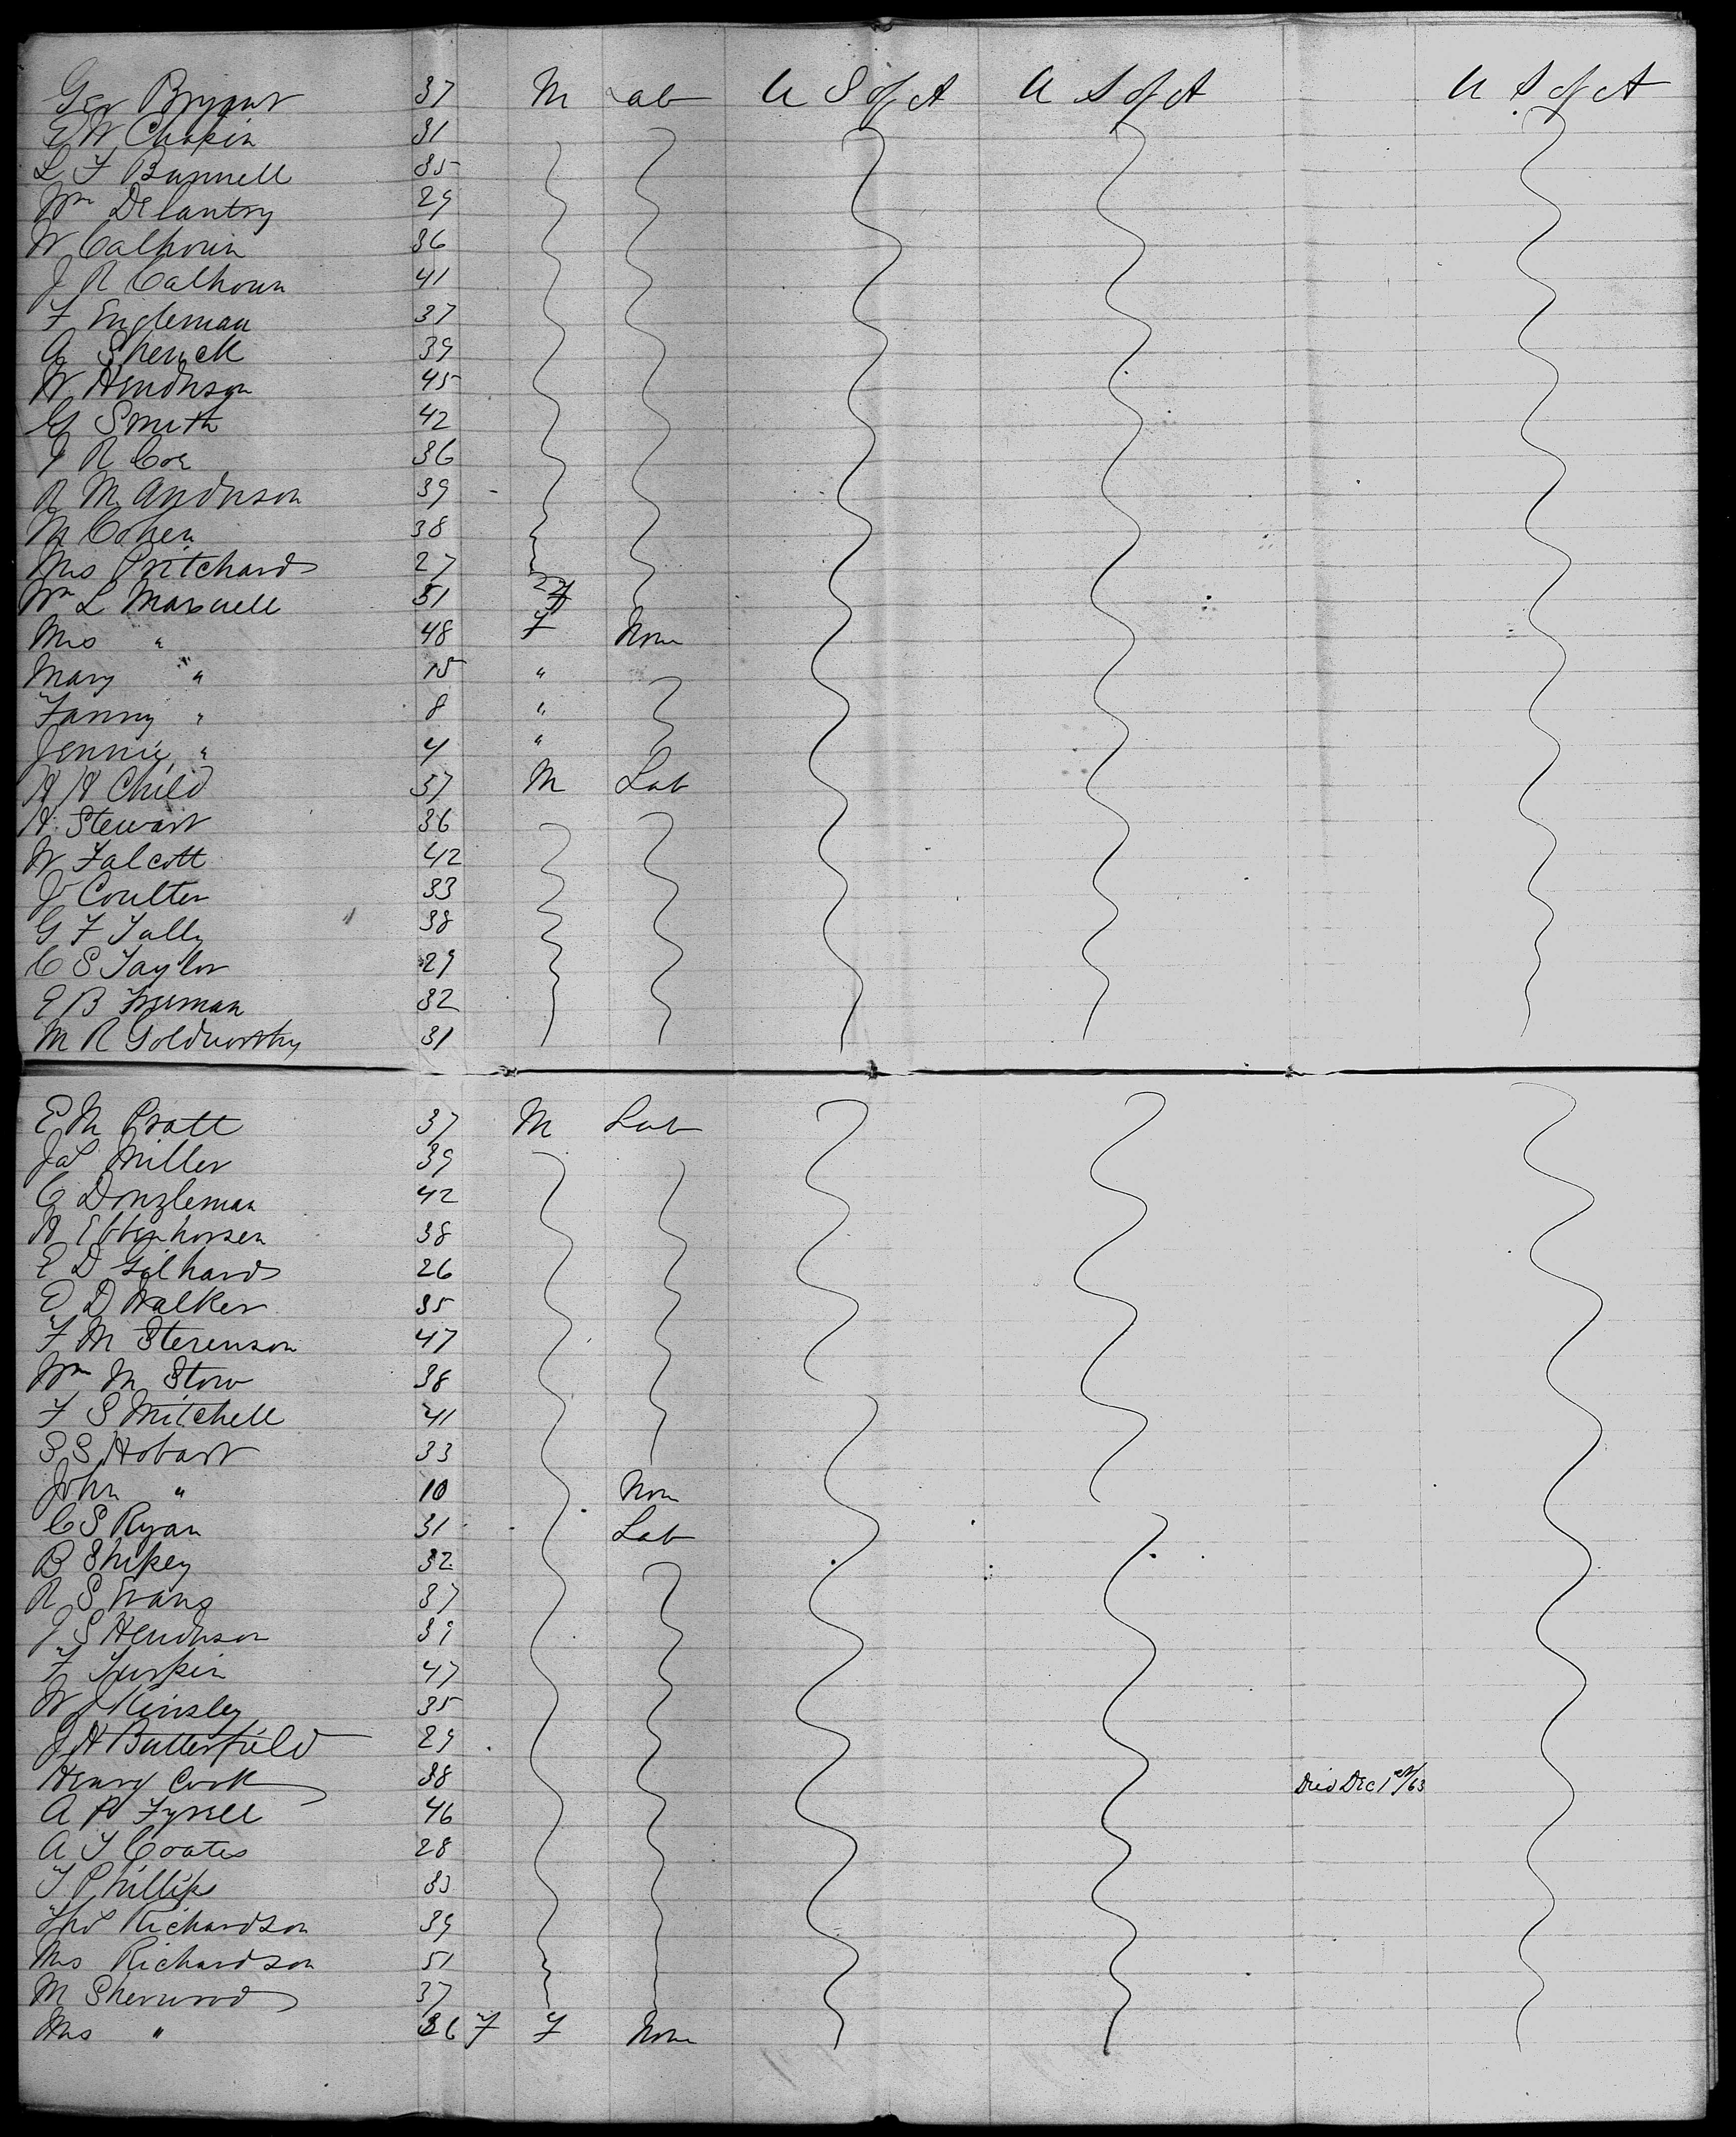 Geo Bryant 37 M Lab U S of A U S of A U S of A
E W Chapin 31
L F Bunnell 35
Wm Delantry 29
W Calhoun 36
J R Calhoun 41
F Engleman 37
A Shenck 39
W Hendrson 45
G Smith 42
J R Coe 36
R M Andrson 39
M Cohen 38
Mrs Pritchard 27
Wm L Maxwell 51
Mrs " 48 F Non
Mary " 15 "
Fanny " 8 "
Jennie " 4 "
H H Child 37 M Lab
H Stewart 36
W Falcott 42
J Coulter 33
G F Tally 38
C S Taylor 29
E B Freeman 32
M R Goldworthy 31
E M Pratt 37 M Lab
Jas Miller 39
C Donzleman 42
H Ebbenhorsen 38
E D Gilhard 26
E D Walker 35
F M Stevenson 47
Wm M Stow 38
F S Mitchell 41
S S Hobart 33
John " 10 Non
C S Ryan 31 Lab
B Shipey 32
R S Evans 37
J S Hendrson 39
F Turpin 47
W J Kinsley 35
J H Butterfield 29
Henry Cook 38 Died Dec 1st/63
A P Tyrell 46
A T Coates 28
T Phillips 33
Thos Richardson 39
Mrs Richardson 51
M Sherwood 37
Mrs " 36 F F Non